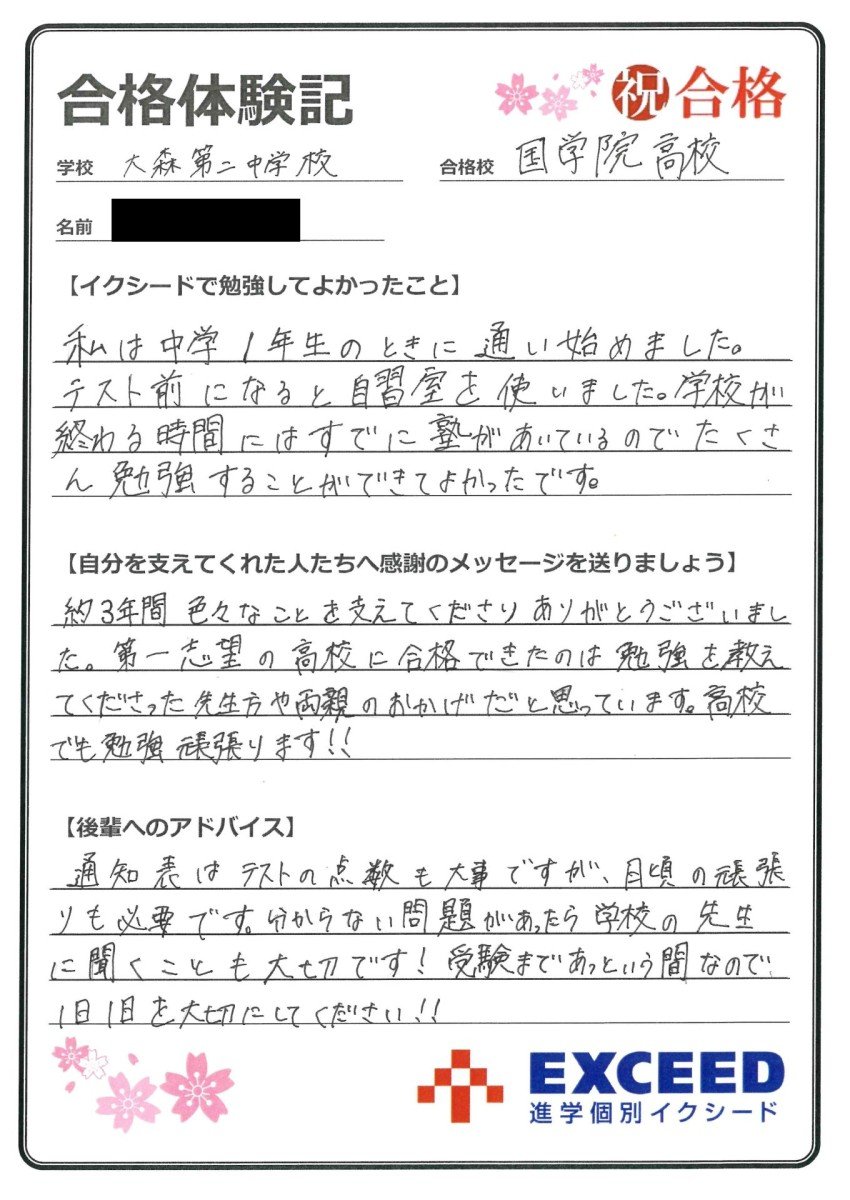 合格体験記
祝合格
学校 大森第二中学校
合格校 国学院高校
名前
【イクシードで勉強してよかったこと】
私は中学1年生のときに通い始めました。
テスト前になると自習室を使いました。学校が
終わる時間にはすでに塾があいているのでたくさ
ん勉強することができてよかったです。
【自分を支えてくれた人たちへ感謝のメッセージを送りましょう】
約3年間色々なことを支えてくださりありがとうございまし
た。第一志望の高校に合格できたのは勉強を教え
てくださった先生方や両親のおかげだと思っています。高校
でも勉強頑張ります!!
【後輩へのアドバイス】
通知表はテストの点数も大事ですが、日頃の頑張
りも必要です。分からない問題があったら学校の先生
に聞くことも大切です!受験まであっという間なので、
1日1日を大切にしてください!!
EXCEED
進学個別イクシード